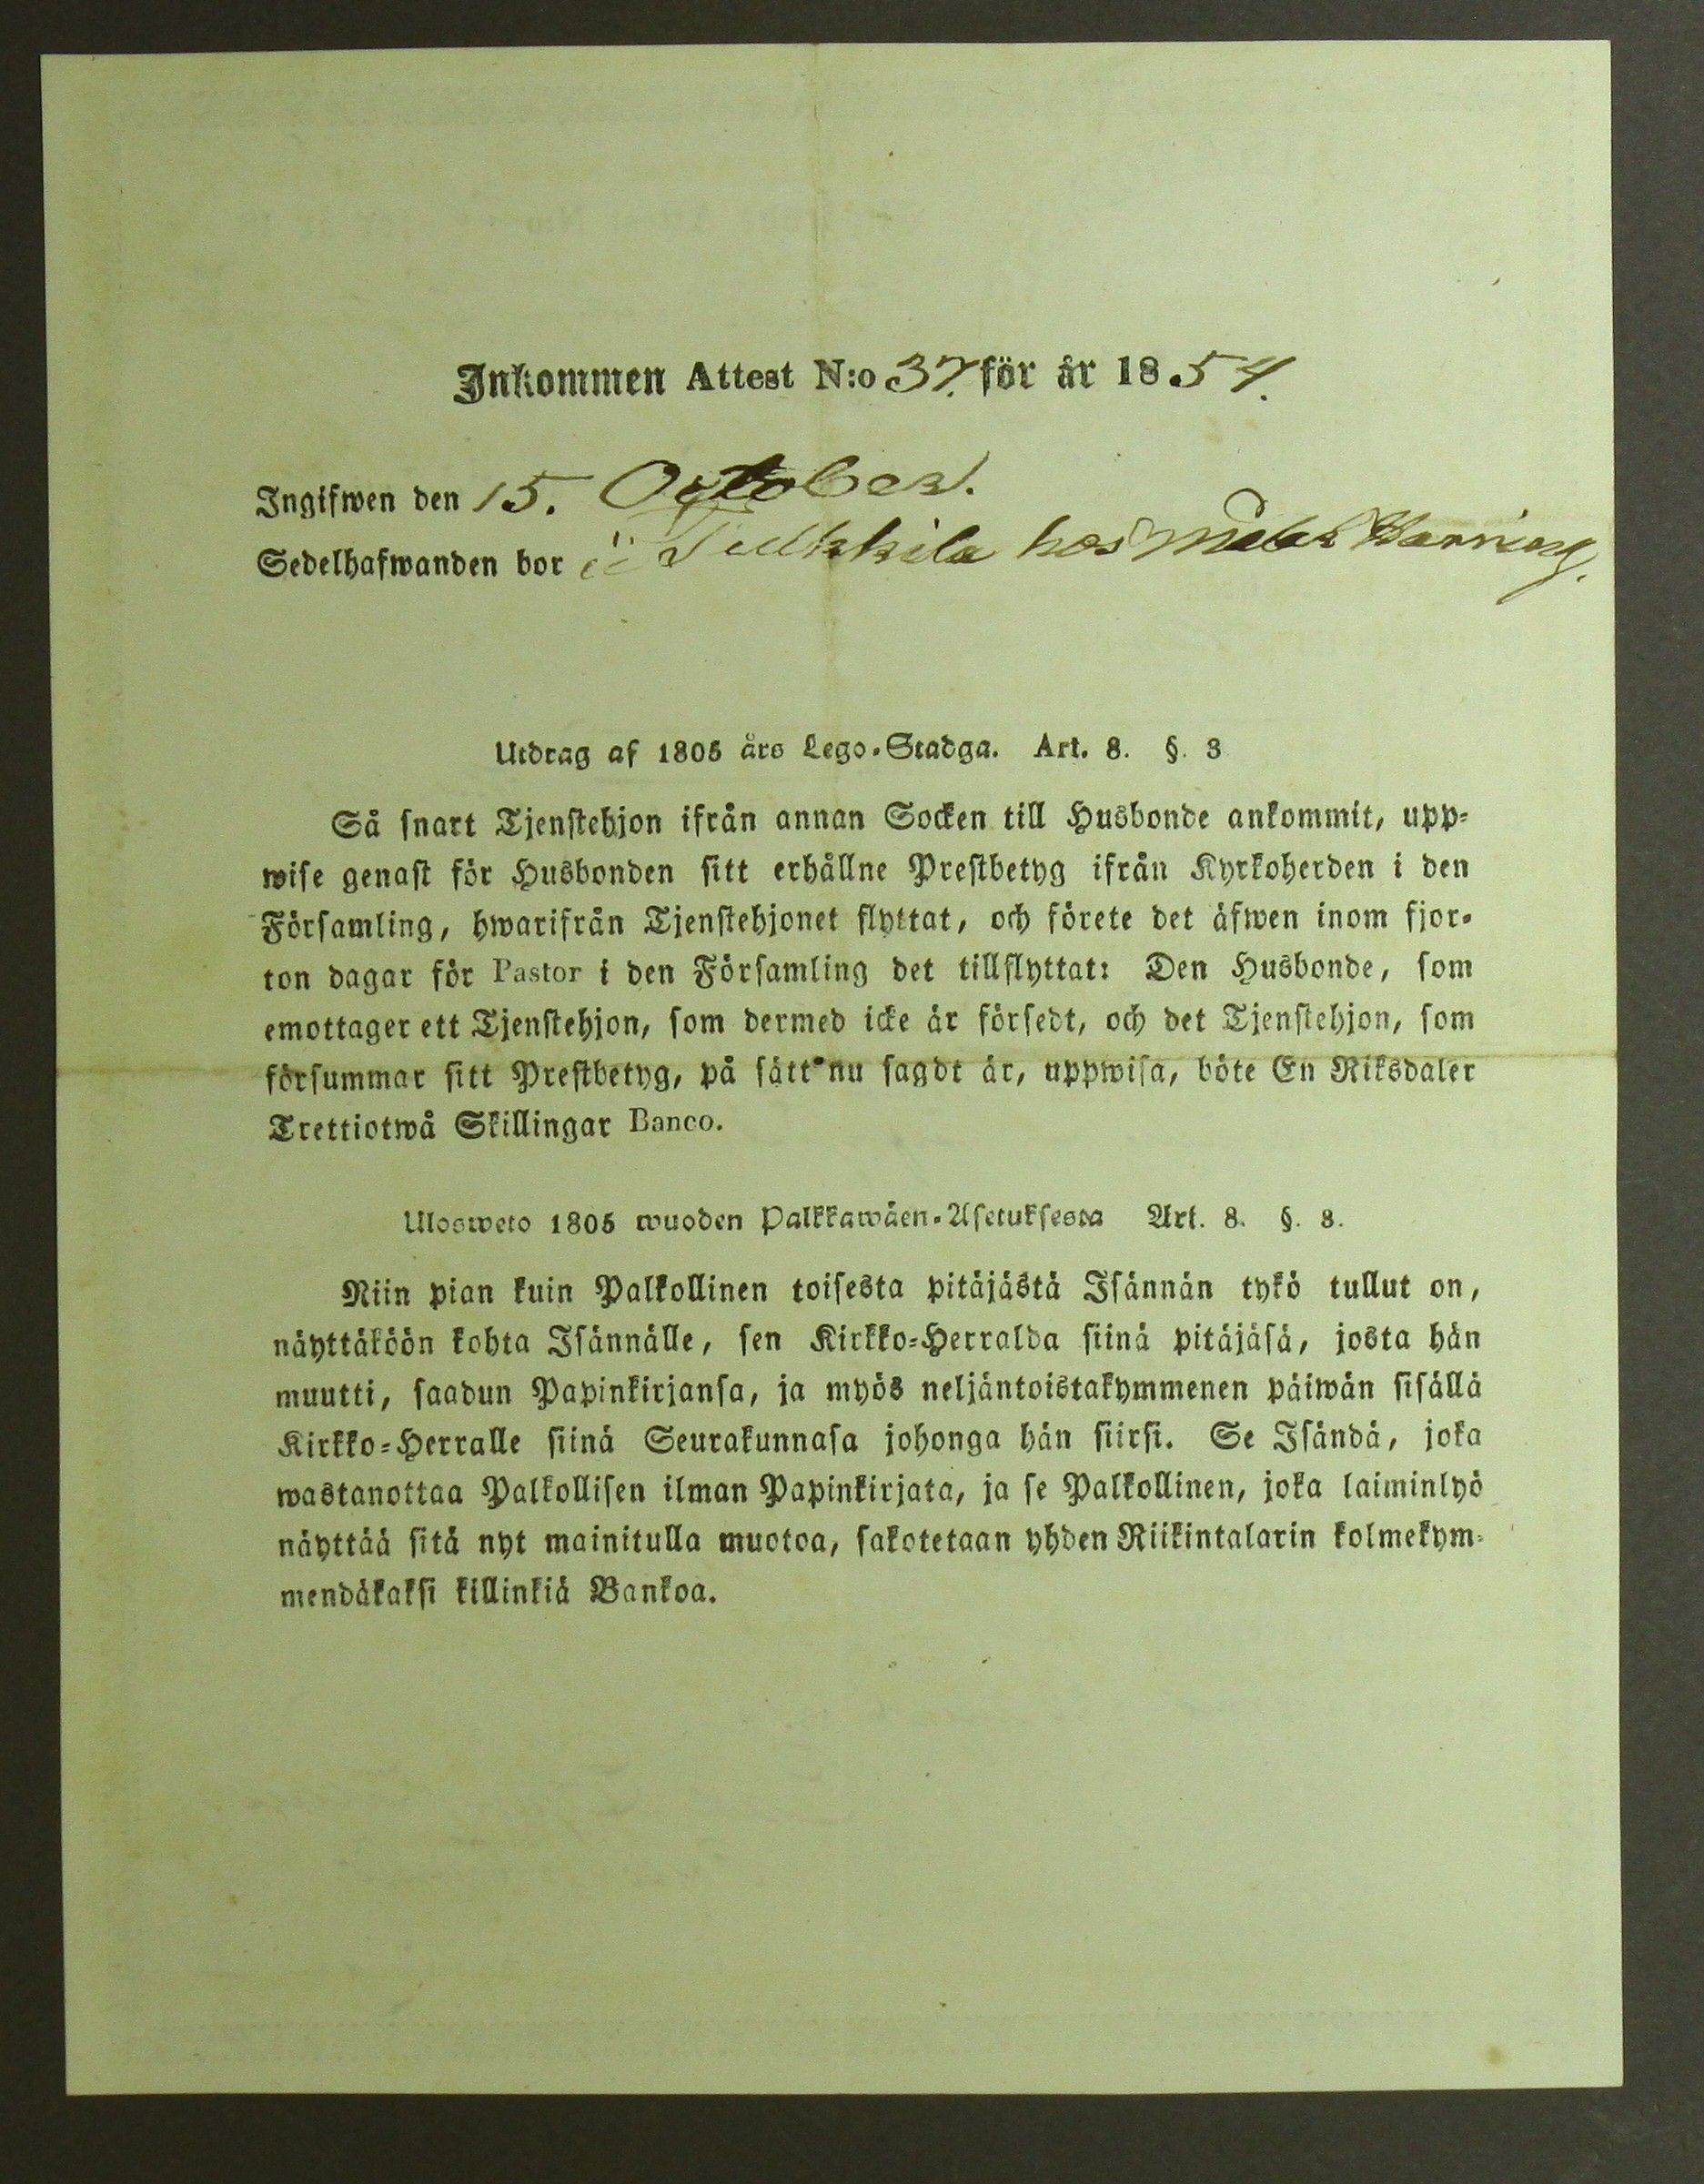 Inkommen Attest N:o 37. för år 1854.
Ingifwen den 15. October.
Sedelhafwanden bor i Tulkkila hos
Utdrag af 1805 års Lego-Stadga. Art. 8. §. 3
Så snart Tjenstehjon ifrån annan Socken till Husbonde ankommit, upp-
wise genast för Husbonden sitt erhållne Prestbetyg ifrån Kyrkoherden i den
Församling, hwarifrån Tjenstehjonet flyttat, och förete det äfwen inom fjor-
ton dagar för Pastor i den Församling det tillflyttat: Den Husbonde, som
emottager ett Tjenstehjon, som dermed icke är försedt, och det Tjenstehjon, som
försummar sitt Prestbetyg, på sätt nu sagdt är, uppwisa, böte En Riksdaler
Trettiotwå Skillingar Banco.
Ulosweto 1805 wuoden Palkkawäen-Asetuksesta Art. 8. §. 3.
Niin pian kuin Palkollinen toisesta pitäjästä Isännän tykö tullut on,
näyttäköön kohta Isännälle, sen Kirkko-Herralda siinä pitäjäsä, josta hän
muutti, saadun Papinkirjansa, ja myös neljäntoistakymmenen päiwän sisällä
Kirkko-Herralle siinä Seurakunnasa johonga hän siirsi. Se Isändä, joka
wastanottaa Palkollisen ilman Papinkirjata, ja se Palkollinen, joka laiminlyö
näyttää sitä nyt mainitulla muotoa, sakotetaan yhden Riikintalarin kolmekym-
mendäkaksi killinkiä Bankoa.